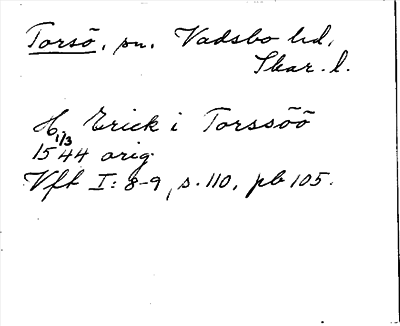 Torsö, sn. Vadsbo hd,
Skar. l.
H. Erick i Torssöö
1/3
1544 orig.
Vft I: 8-9, s. 110, pb 105.